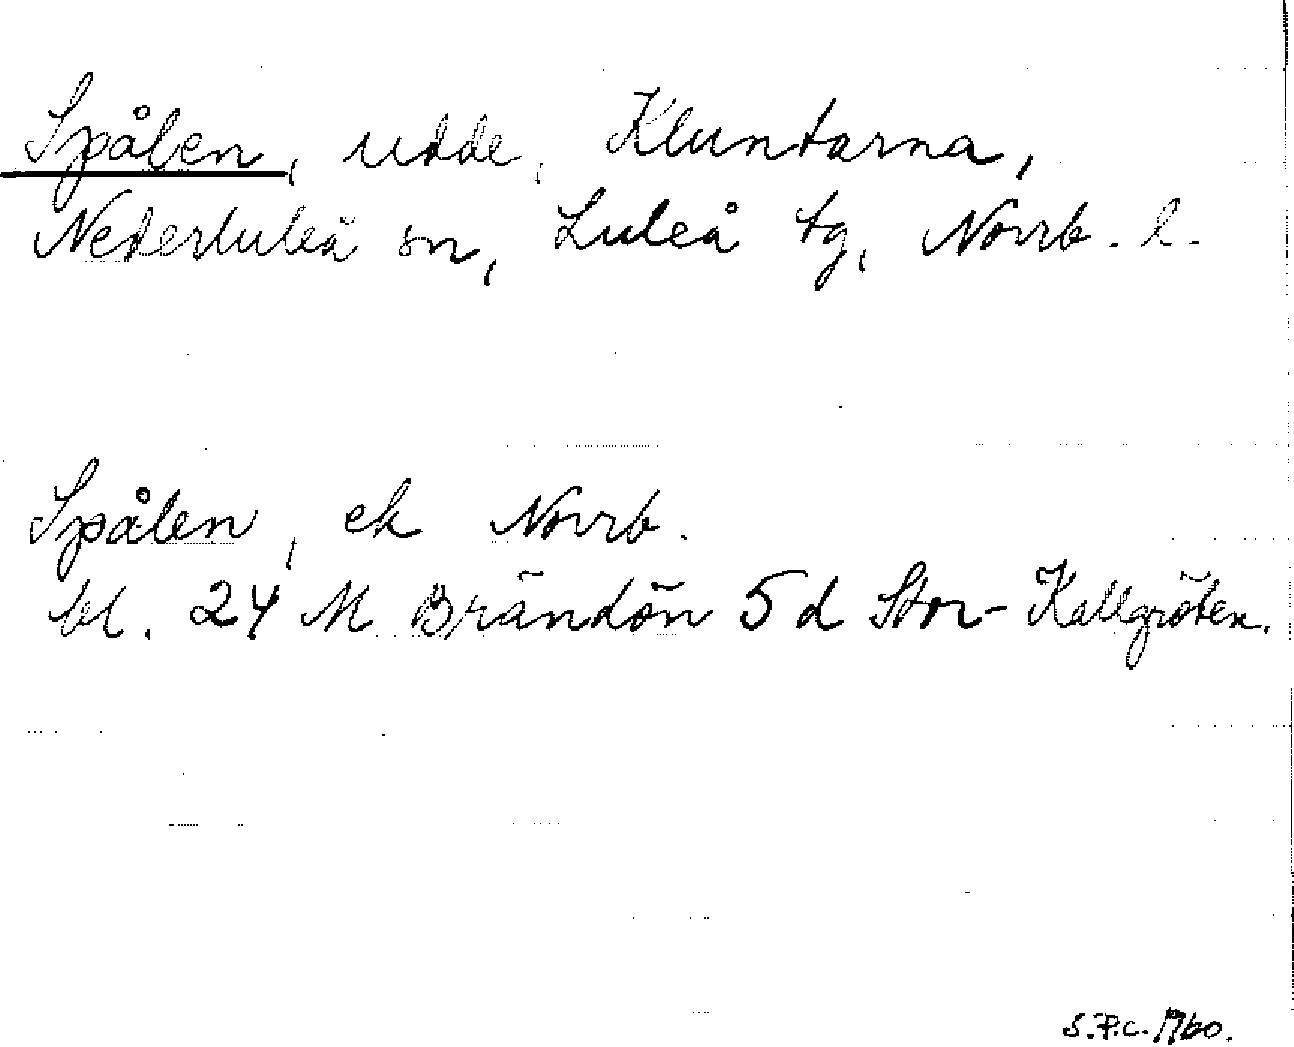 Spålen, udde, Kluntarna,
Nederluleå sn, Luleå tg, Norrb. l.
Spålen, ek Norrb.
bl. 24 M Brändön 5 d Stor-Kallgröten.
S.P.C. 1960.